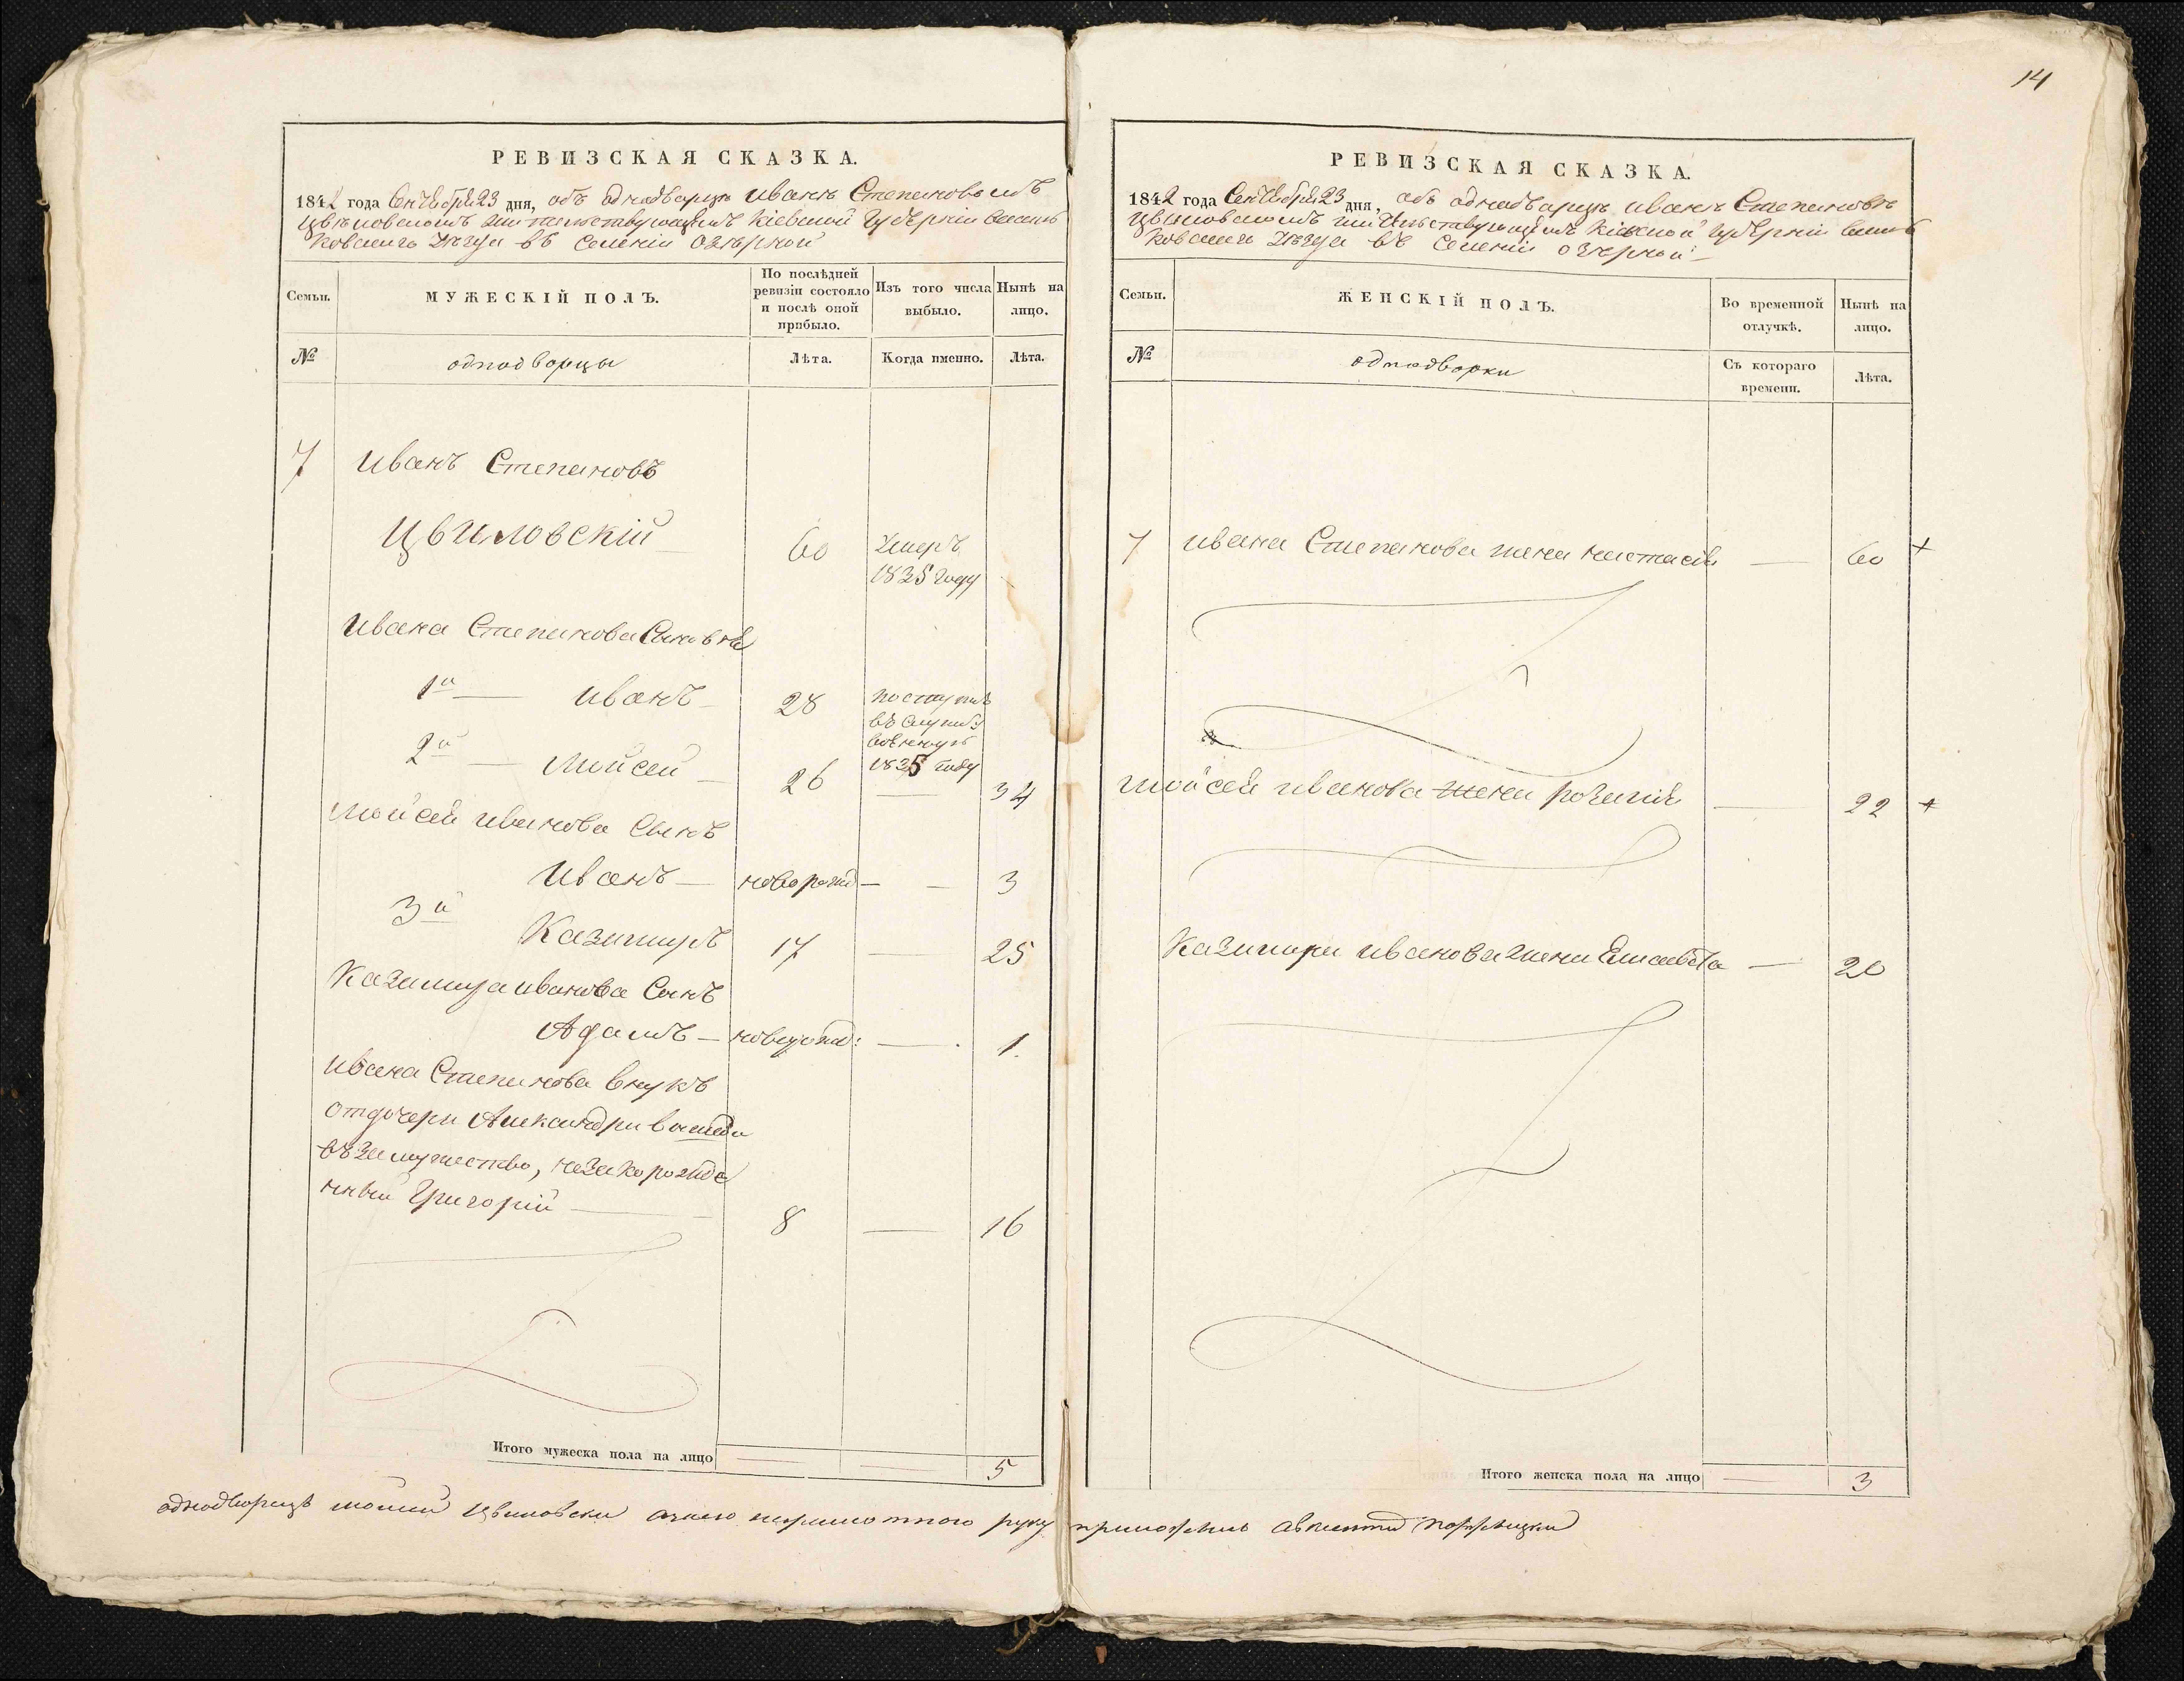 14
РЕВИЗСКАЯ СКАЗКА.
1842 года Сентября 23 дня, объ однодворцѣ Иванѣ Степановомъ
Цвѣловскомъ жительствующемъ Кіевской Губерніи Василь
ковскаго Уѣзда въ Селеніи Озѣрной
Семьи.
МУЖЕСКІЙ ПОЛЪ.
По послѣдней
ревизіи состояло
и послѣ оной
прибыло.
Изъ того числа
выбыло.
Нынѣ на
лицо.
№
однодворцы
Лѣта.
Когда именно.
Лѣта.
7 Иванъ Степановъ
Цвиловскій 60 Умеръ
1835 году
Ивана Степанова Сыновья
1й — Иванъ — 28 поступилъ
въ службу
военную
1835 году
2й — Мойсей — 26 — 34
Мойсея Иванова Сынъ
Иванъ — новорожд — — 3
3й Казимиръ 17 — 25
Казимира Иванова Сынъ
Адамъ — новорожд: — 1.
Ивана Степанова Внукъ
отдочери Александри
въ замужество, незакорожде
нный Григорій — 8 — 16
Итого мужеска пола на лицо — — 5
РЕВИЗСКАЯ СКАЗКА.
1842 года Сентября 23 дня, объ однодворцѣ Иванѣ Степановѣ
Цвиловскомъ жительствующемъ Кіевской Губерніи Василь
ковскаго Уѣзда въ Селеніи Озѣрной
Семьи.
ЖЕНСКІЙ ПОЛЪ.
Во временной
отлучкѣ.
Нынѣ на
лицо.
№
однодворки
Съ котораго
времени.
Лѣта.
7 Ивана Степанова жена Настасія — 60 +
Мойсея Иванова жена Розалія — 22 +
Казимира Иванова жена Елисавета — 20
Итого женска пола на лицо — 3
однодворецъ Мойсей Цвиловски анего неграмотного руку приложилъ